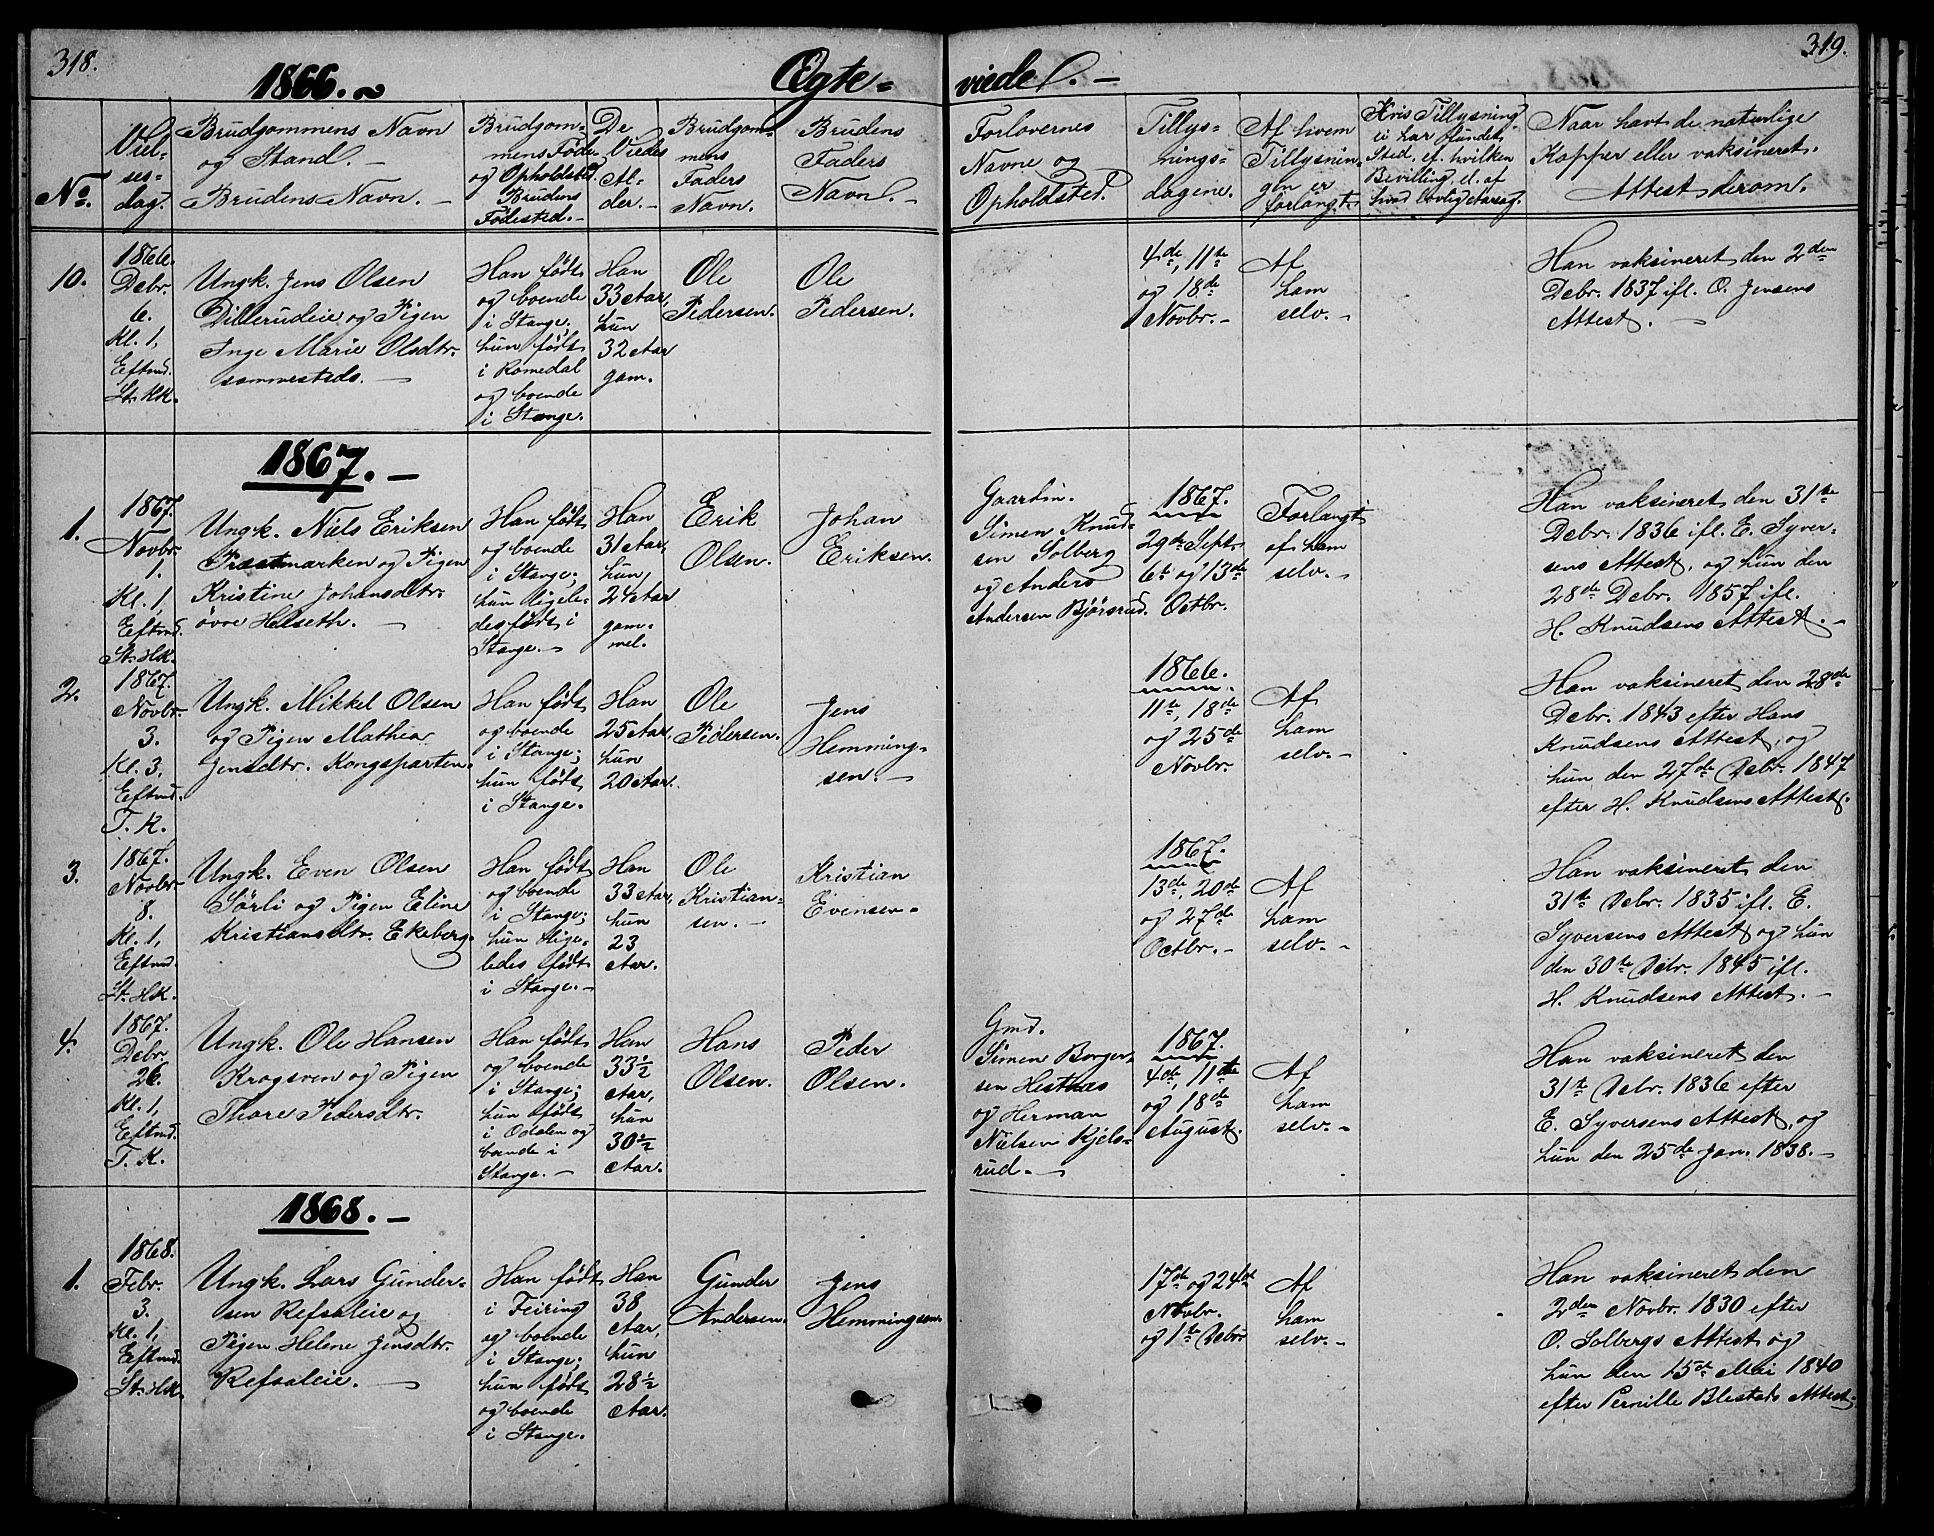 318.
1866.
Ægte-
viede.-
319.
No.
Viel-
ses-
dag.
Brudgommens Navn
og Stand.-
Brudens Navn.-
Brudgom-
mens Føde
og Opholdsted.
Brudens
Fødested.-
De
Viedes
Al-
der.-
Brudgom-
mens
Faders
Navn.
Brudens
Faders
Navn.-
Forlovernes
Navne og
Opholdsted.
Tillys-
nings-
dagene.
Af hvem
Tillysnin
gen er
forlangt.
Hvis Tillysning
ei har fundet
Sted, ef. hvilken
Bevilling el. af
hvad lovlig Aarsag.
Naar havt de naturlige
Kopper eller vaksineret.
Attest derom.
10.
1866.
Debr.
6.
Kl. 1,
Eftmd.
St. HK.
Ungk. Jens Olsen
Dillerudeie og Pigen
Inge Marie Olsdtr.
sammesteds.-
Han født
og boende
i Stange;
hun født
i Romedal
og boende
i Stange.
Han
33 Aar,
hun
32 Aar
gam.
Ole
Pedersen.
Ole
Pedersen.
4de, 11te
og 18de
Novbr.-
Af
ham
selv.-
Han vaksineret den 2den
Debr. 1837 ifl. O. Jensens
Attest.-
1867.-
1.
1867.
Novbr.
1.
Kl. 1,
Eftmd.
St. HK.
Ungk. Niels Eriksen
Præstmarken og Pigen
Kristine Johansdtr.
øvre Helseth.-
Han født
og boende
i Stange;
hun ligele-
des født i
Stange.-
Han
31 Aar,
hun
24 Aar
gam-
mel.
Erik
Olsen.
Johan
Eriksen.
Gaardm.
Simen Knud-
sen Solberg
og Anders
Andersen Bjørsrud.
1867.
29de Sept.
6te og 13de
Octbr.
Forlangt
af ham
selv.-
Han vaksineret den 31te
Debr. 1836 ifl. E. Syver-
sens Attest, og hun den
28de Debr. 1857 ifl.
H. Knudsens Attest.-
2.
1867.
Novbr.
3.
Kl. 3,
Eftmd.
T. K.
Ungk. Mikkel Olsen
og Pigen Mathea
Jensdtr. Kongsparten.
Han født
og boende
i Stange;
hun født
i Stange.
Han
25 Aar,
hun
20 Aar.
Ole
Pedersen.
Jens
Hemming-
sen.-
1866.
11te, 18de
og 25de
Novbr.
Af
ham
selv.-
Han vaksineret den 28de
Debr. 1843 efter Hans
Knudsens Attest, og
hun den 27de Debr. 1847
efter H. Knudsens Attest.
3.
1867.
Novbr.
8.
Kl. 1,
Eftmd.
St. HK.
Ungk. Even Olsen
Sørli og Pigen Eline
Kristiansdtr. Ekeberg.
Han født
og boende
i Stange;
hun lige-
ledes født
i Stange.-
Han
33 Aar,
hun
23
Aar.
Ole
Kristian-
sen.-
Kristian
Evensen.
1867.
13de, 20de
og 27de
Octbr.-
Af
ham
selv.-
Han vaksineret den
31te Debr. 1835 ifl. E.
Syversens Attest og hun
den 30te Debr. 1845 ifl.
H. Knudsens Attest.-
4.
1867.
Debr.
26.
Kl. 1,
Eftmd.
T. K.
Ungk. Ole Hansen
Krogsven og Pigen
Thore Pedersdtr.
Han født
og boende
i Stange;
hun født
i Odalen og
boende i
Stange.-
Han
33½
Aar,
hun
30½
Aar.
Hans
Olsen.
Peder
Olsen.
Gmd.
Simen Borger-
sen Hestnæs
og Herman
Nielsen Kjels-
rud.-
1867.
4de, 11te
og 18de
August.
Af
ham
selv.-
Han vaksineret den
31te Debr. 1836 efter
E. Syversens Attest, og
hun den 25de Jan. 1838.-
1868.-
1.
1868.
Febr.
3.
Kl. 1,
Eftmd.
St. HK
Ungk. Lars Gunder-
sen Refsaleie og
Pigen Helene Jensdtr.
Refsaleie.-
Han født
i Feiring
og boende
i Stange;
hun født
og boende
i Stange.
Han
38
Aar,
hun
28½
Aar.
Gunder
Andersen.
Jens
Hemmingsen.
17de og 24de
Novbr.
og 1te Debr.
Af
ham
selv.-
Han vaksineret den
2den Novbr. 1830 efter
O. Solbergs Attest og
hun den 15de Mai 1840
efter Pernille Blestads Attest.